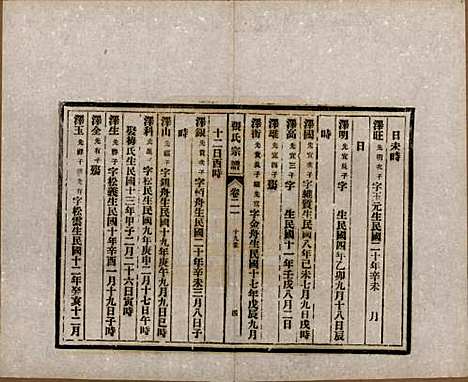 日未時
澤旺 光明次子 字玉元生民國二十年辛未 月
日
澤明 光宜子 生民國四年乙卯九月十八日辰
時
澤國 光宜次子 字總賢生民國八年己未七月九日戌時
澤高 光宜三子 生民國十一年壬戌八月二日
澤雄 光宜四子 殤
澤衡 光宜五子 字金舟生民國十七年戊辰九月
張氏宗譜 卷二二 四
十二日酉時
澤銀 光賓次子 字柏舟生民國二十年辛未三月八日子
時
澤山 光福次子 字釗舟生民國十九年庚午九月九日
澤科 光斌子 字松民生民國九年庚申二月十七日午時
娶梅氏生民國十三年甲子二月二十六日寅時
澤生 光勝子 字松義生民國十年辛酉一月十九日子時
澤金 光有子 殤
澤玉 光勝子 字松雲生民國十二年癸亥十二月